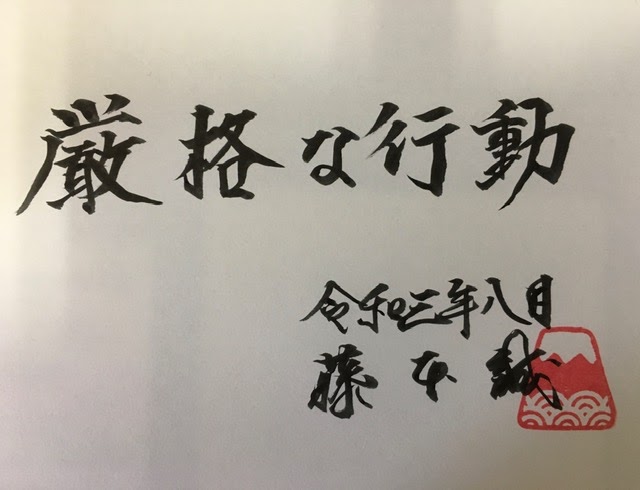 厳格な行動
令和三年八月
藤本誠